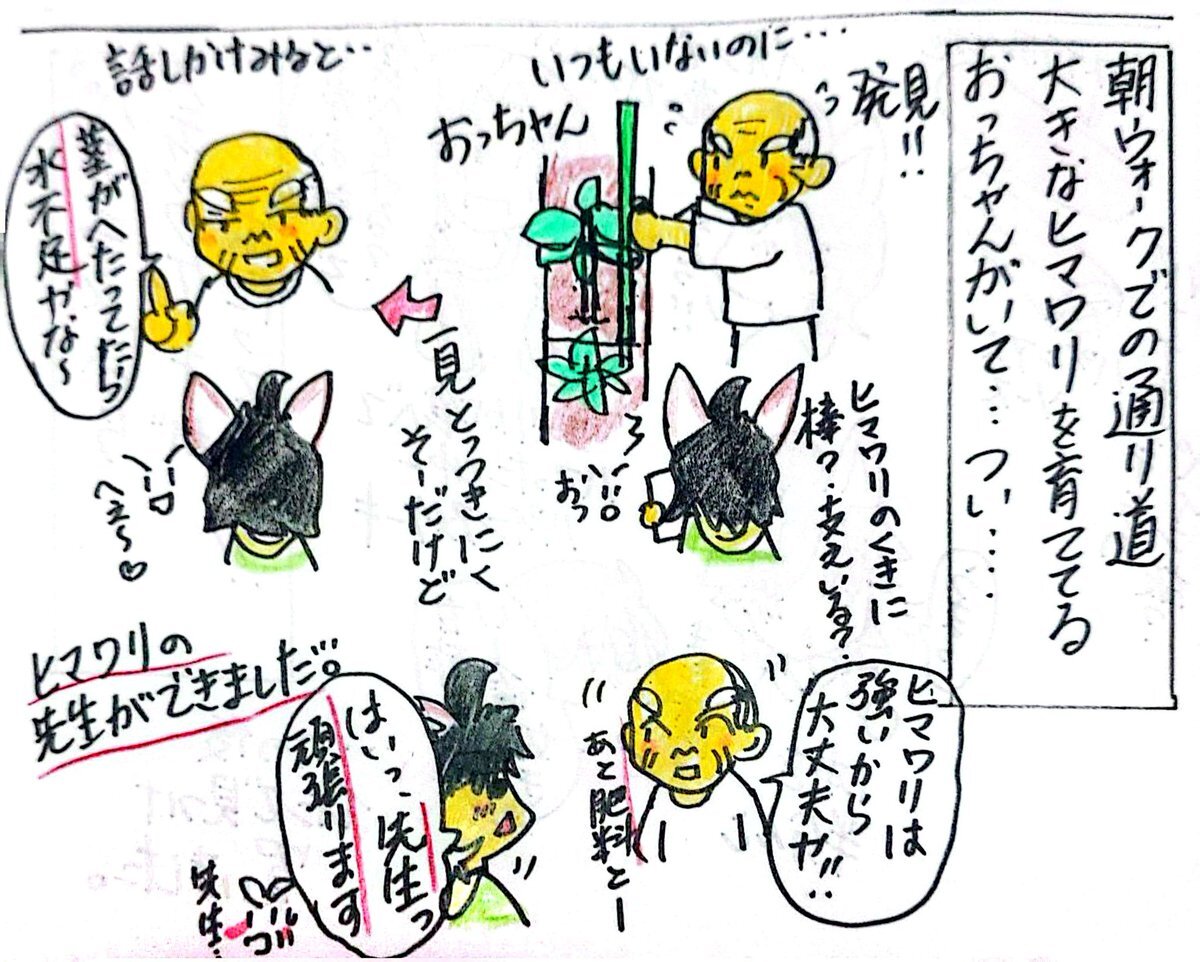 朝ウォークでの通り道
大きなヒマワリを育ててる
おっちゃんがいて…つい……
発見!!
いつもいないのに…
おっちゃん
ヒマワリのくきに
棒?支えいる?
おっ
話しかけみると…
一見とっつきにく
そーだけど
茎がへたってたら
水不足やな~
へぇ~♡
ヒマワリは
強いから
大丈夫や!!
あと肥料とー
はいっ先生っ
頑張ります
先生…
ヒマワリの
先生ができました。